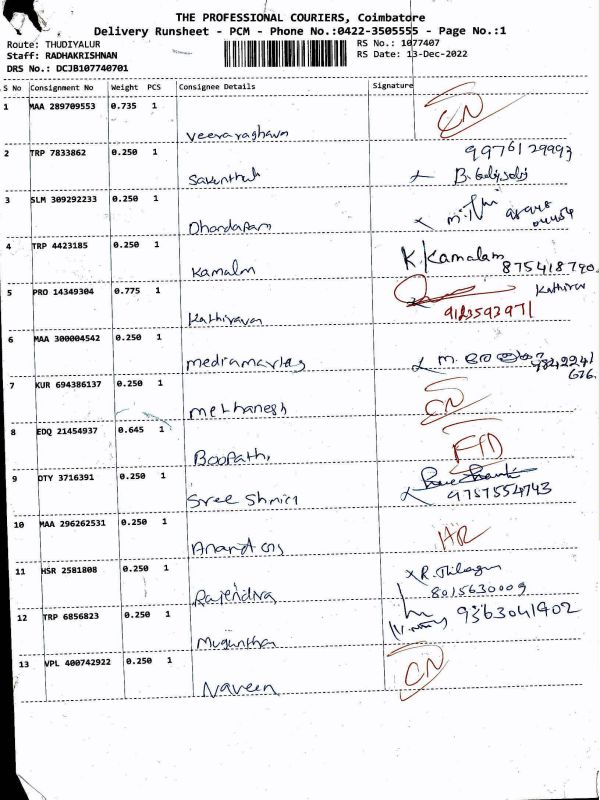 THE PROFESSIONAL COURIERS, Coimbatore
Delivery Runsheet - PCM - Phone No.:0422-3505555 - Page No.:1
Route: THUDIYALUR
RS No.: 1077407
Staff: RADHAKRISHNAN
RS Date: 13-Dec-2022
DRS No.: DCJB107740701
S No Consignment No Weight PCS Consignee Details Signature
1 MAA 289709553 0.735 1
CN
Veeraraghavan
2 TRP 7833862 0.250 1
9976129993
3 SLM 309292233 0.250 1
Dhandapani
4 TRP 4423185 0.250 1
K. Kamalam
Kamalm
875418790
5 PRO 14349304 0.775 1
Kathirvan
6 MAA 300004542 0.250 1
7 KUR 694386137 0.250 1
CN
8 EDQ 21454937 0.645 1
Boopathi
9 DTY 3716391 0.250 1
Sree
9757554743
10 MAA 296262531 0.250 1
HR
Anand
11 HSR 2581808 0.250 1
R. Thilagam
8015630009
Rajendira
12 TRP 6856823 0.250 1
9363041902
Muguntha
13 VPL 400742922 0.250 1
CN
Naveen